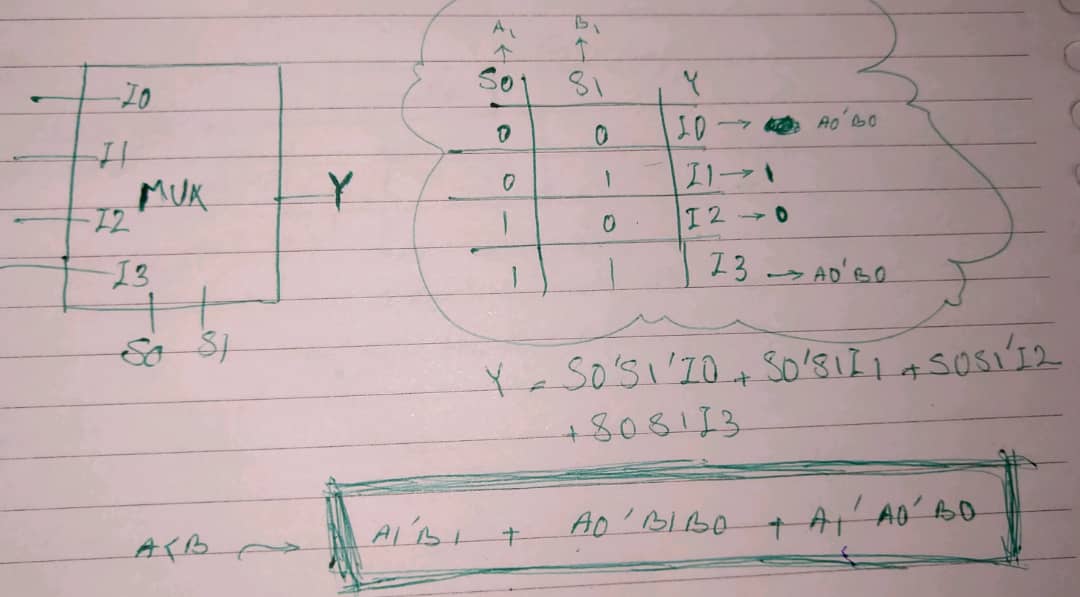 I0
I1
MUX
I2
I3
Y
S0 S1
A1 B1
S0 S1 Y
0 0 I0 → A0'B0
0 1 I1 → 1
1 0 I2 → 0
1 1 I3 → A0'B0
Y = S0'S1'I0 + S0'S1I1 + S0S1'I2
+ S0S1I3
A<B → A1'B1 + A0'B1B0 + A1'A0'B0